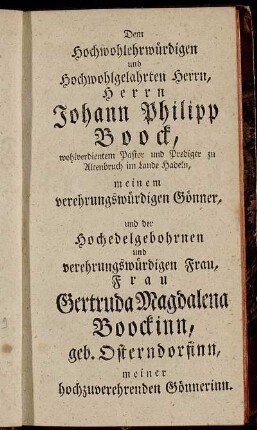 Dem
Hochwohlehrwürdigen
und
Hochwohlgelahrten Herrn,
Herrn
Johann Philipp
Boock,
wohlverdientem Pastor und Prediger zu
Altenbruch im Lande Hadeln,
meinem
verehrungswürdigen Gönner,
und der
Hochedelgebohrnen
und
verehrungswürdigen Frau,
Frau
Gertruda Magdalena
Boockinn,
geb. Osterndorfinn,
meiner
hochzuverehrenden Gönnerinn.